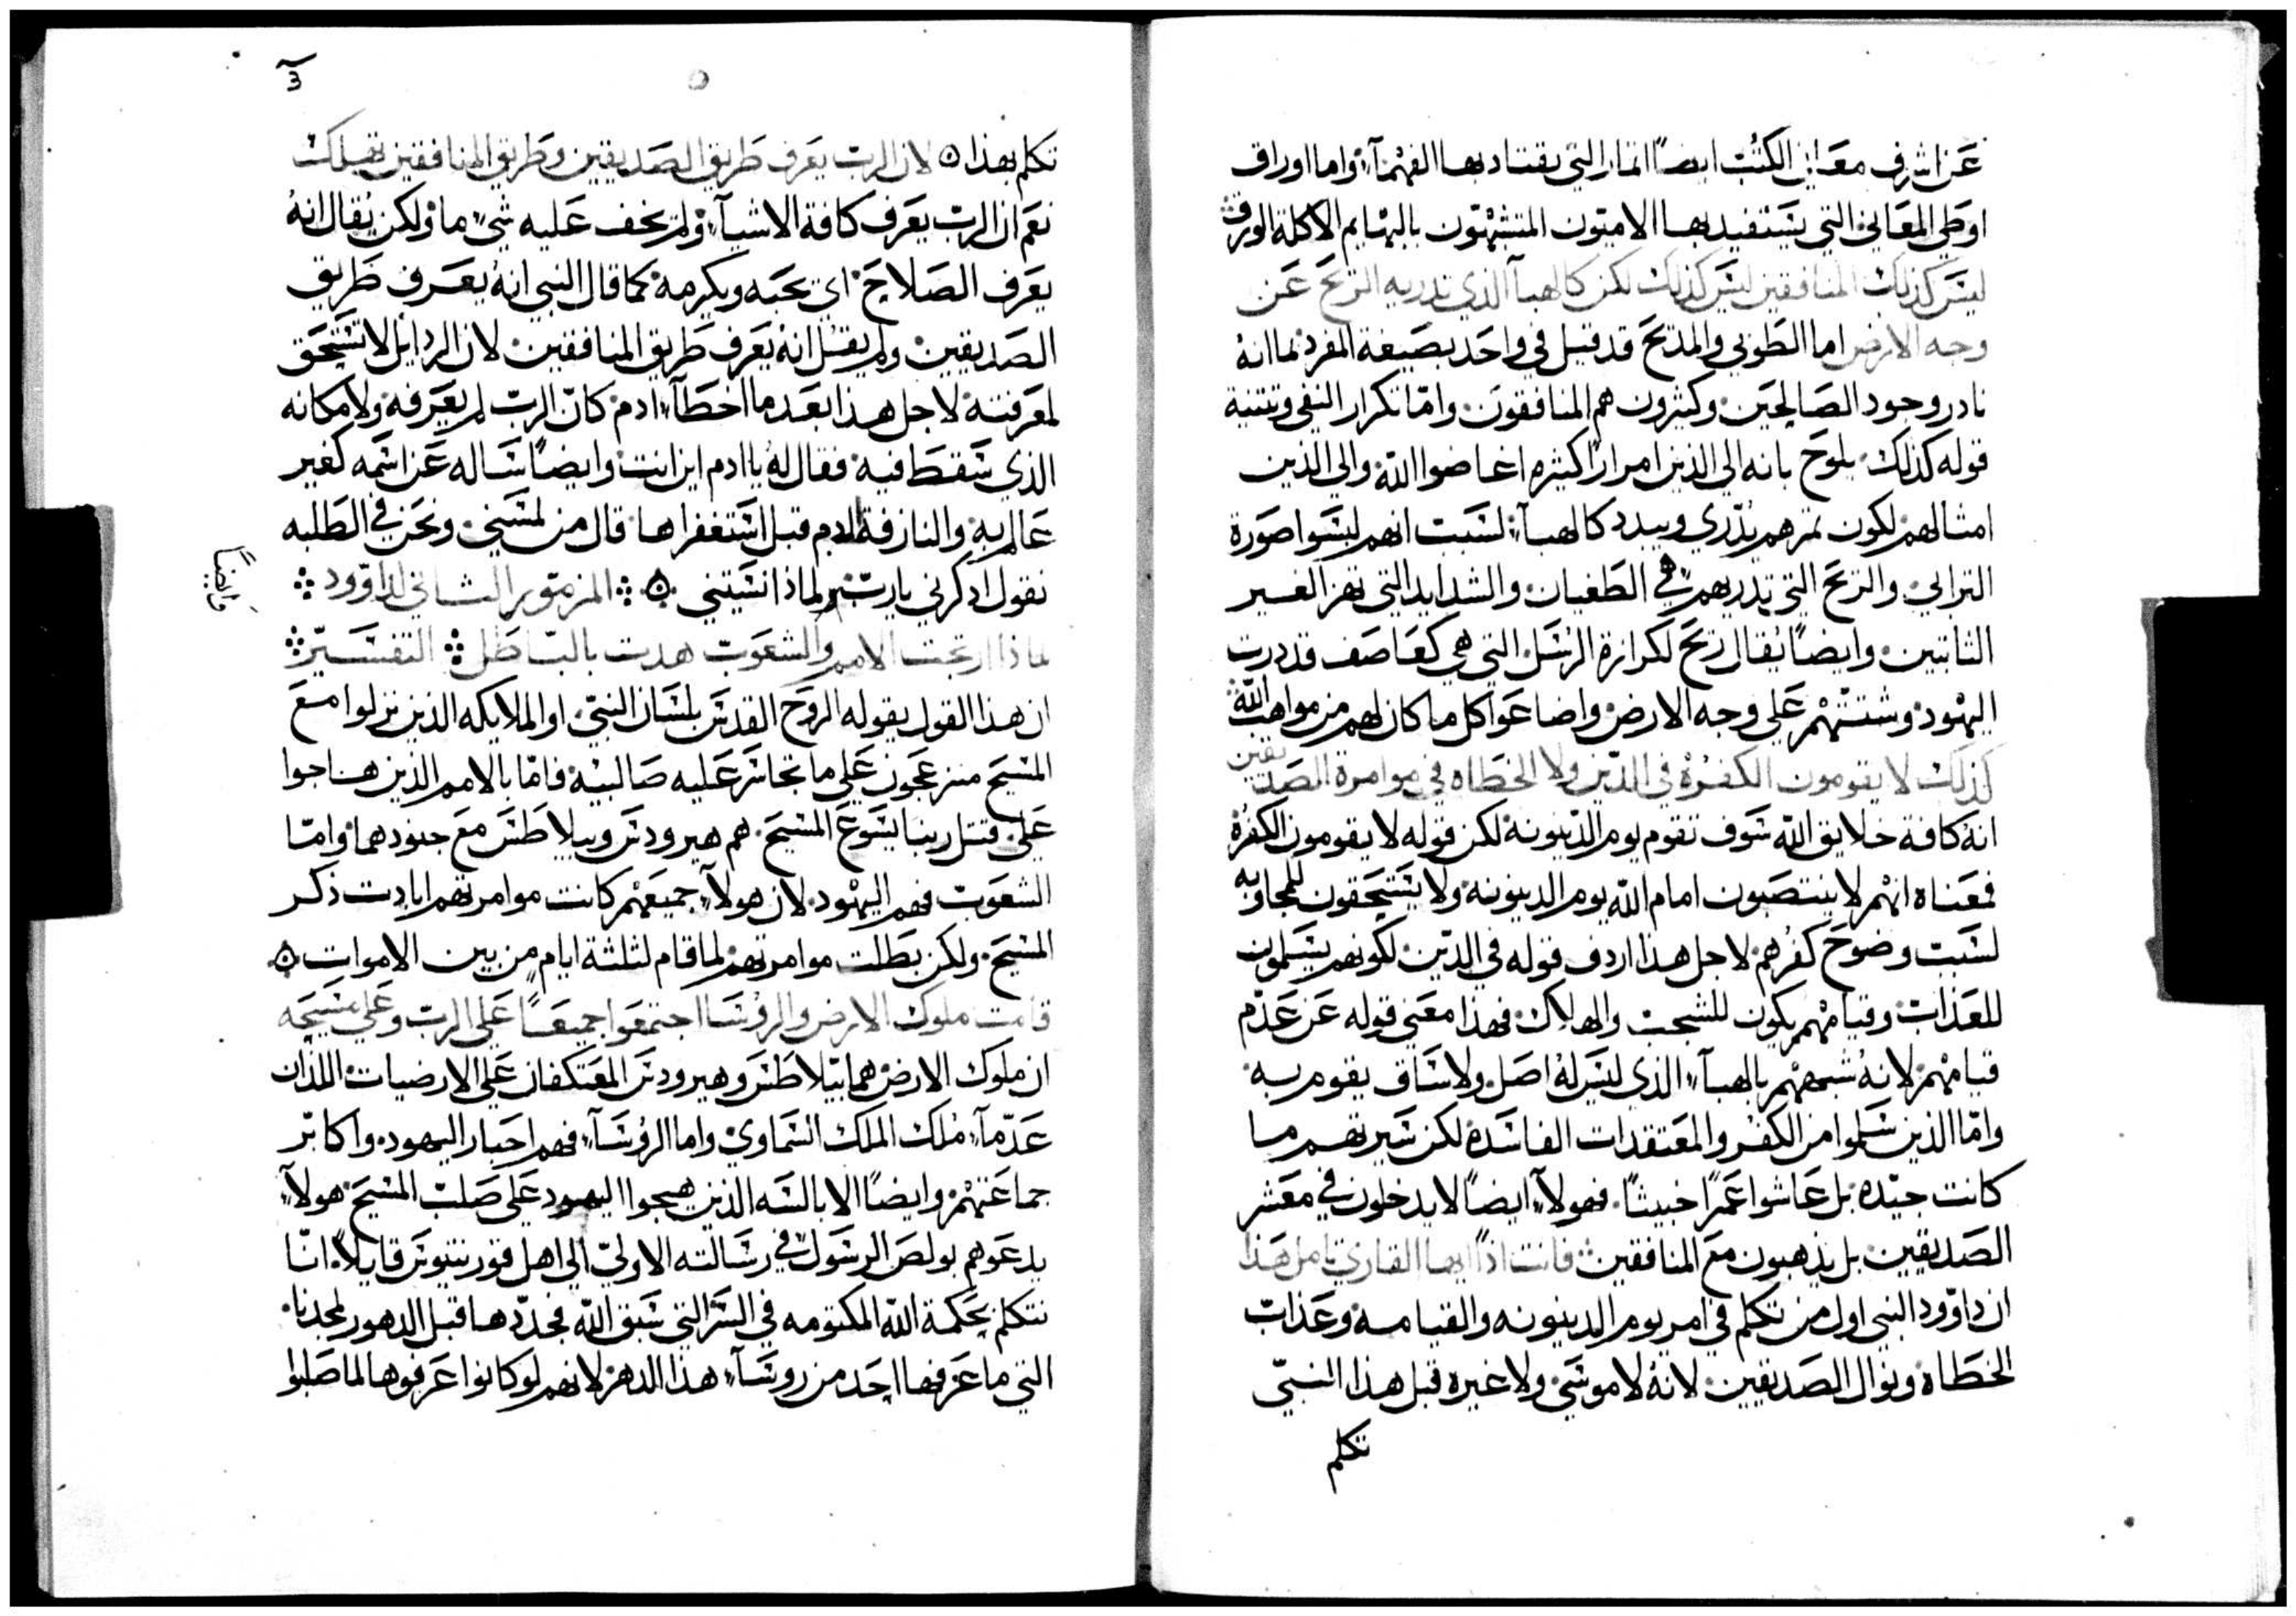 عن اشرف معاني الكتب ايضاً اثمار التي يقتاد بها الفهمآء واما اوراق
اوطي المعاني التي يستفيد بها الاميون المتشبهون بالبهايم الاكلة الورق
ليس كذلك المنافقين ليس كذلك لكن كالهبآ الذي تدريه الريح عن
وجه الارض اما الطوبي والمديح قد قيل في واحد بصيغة المفرد لما انه
نادر وجود الصالحين وكثيرون هم المنافقون وامّا تكرار النفي وتثنية
قوله كذلك يلوح بانه الي الذين امراراً كثيره اغاضوا الله والي الذين
امثالهم لكون ثمرهم يدّري ويبدد كالهبآء لسبب انهم لبسوا صورة
الترابي والريح التي تدريهم هي الطغيان والشدايد التي تهز الغير
الثابتين وايضاً يقال ريح لكرازة الرسل التي هي كعاصف قد درت
اليهود وشتتهم علي وجه الارض واضاعوا كل ما كان لهم من مواهب الله
كذلك لا يقومون الكفرة في الدين ولا الخطاه في موامرة الصديقين
انه كافة خلايق الله سوف تقوم يوم الدينونه لكن قوله لا يقومون الكفره
فمعناه انهم لا ينتصبون امام الله يوم الدينونه ولا يستحقون للمجاوبه
لسبب وضوح كفرهم لاجل هذا اردف قوله في الدّين لكونهم يسلمون
للعذاب وقيامهم يكون للشجب والهلاك فهذا معني قوله عن عدّم
قيامهم لانه شبههم بالهبآء الذي ليس له اصل ولا ساق يقوم به
وامّا الذين سلموا من الكفر والمعتقدات الفاسده لكن سيرتهم ما
كانت جيّده بل عاشوا عمراً خبيثاً فهولآء ايضاً لا يدخلون في معشر
الصديقين بل يذهبون مع المنافقين فانت اذاً ايها القاري تامل هذا
ان داوّود النبي اول من تكلم في امر يوم الدينونه والقيامه وعذاب
الخطاه ونوال الصديقين لانه لا موسي ولا غيره قبل هذا النبيّ
تكلم
تكلم بهذا لان الرب يعرف طريق الصديقين وطريق المنافقين تهلك
نعم ان الرب يعرف كافة الاشيآء ولم يخف عليه شيء ما ولكن يقال انه
يعرف الصلاح اي يحبه ويكرمه كما قال النبي انه يعرف طريق
الصديقين ولم يقل انه يعرف طريق المنافقين لان الردايل لا تستحق
لمعرفته لاجل هذا بعد ما اخطآء ادم كانّ الرب لم يعرفه ولا مكانه
الذي سقط فيه فقال له يا ادم اين انت وايضاً ساله عن اسمه كغير
عالم به والنازفة الدم قبل استغفراها قال من لمسني ونحن في الطلبه
نقول ادكرني يا رب لماذا نسيتني المزمور الثاني لداوّود
وايضاً
لماذا ارتجت الامم والشعوب هدت بالباطل التفسير
ان هذا القول يقوله الروح القدس بلسان النبيّ او الملايكه الذين نزلوا مع
المسيح منزعجون علي ما تجاسر عليه صالبيه فامّا بالامم الذين هاجوا
علي قتل ربنا يسوع المسيح هم هيرودس وبيلاطس مع جنودهما وامّا
الشعوب فهم اليهود لان هولآء جميعهم كانت موامرتهم ابادت ذكر
المسيح ولكن بطلت موامرتهم لما قام لثلثة ايام من بين الاموات
قامت ملوك الارض والروسا اجتمعوا جميعاً علي الرب وعلي مسيحه
ان ملوك الارض هما بيلاطس وهيرودس المعتكفان علي الارضيات اللذان
عدّمآء مُلك الملك السماوي واما الروسآء فهم احبار اليهود واكابر
جماعتهم وايضاً الابالسه الذين هيجوا اليهود علي صلب المسيح هولآء
يدعوهم بولص الرسول في رسالته الاوليّ الي اهل قورنتيوس قايلاً انّا
نتكلم بحكمة الله المكتومه في السر التي سبق الله فحدّدها قبل الدهور لمجدنا
التي ما عرفها احد من روسآء هذا الدهر لانهم لو كانوا عرفوها لما صلبوا